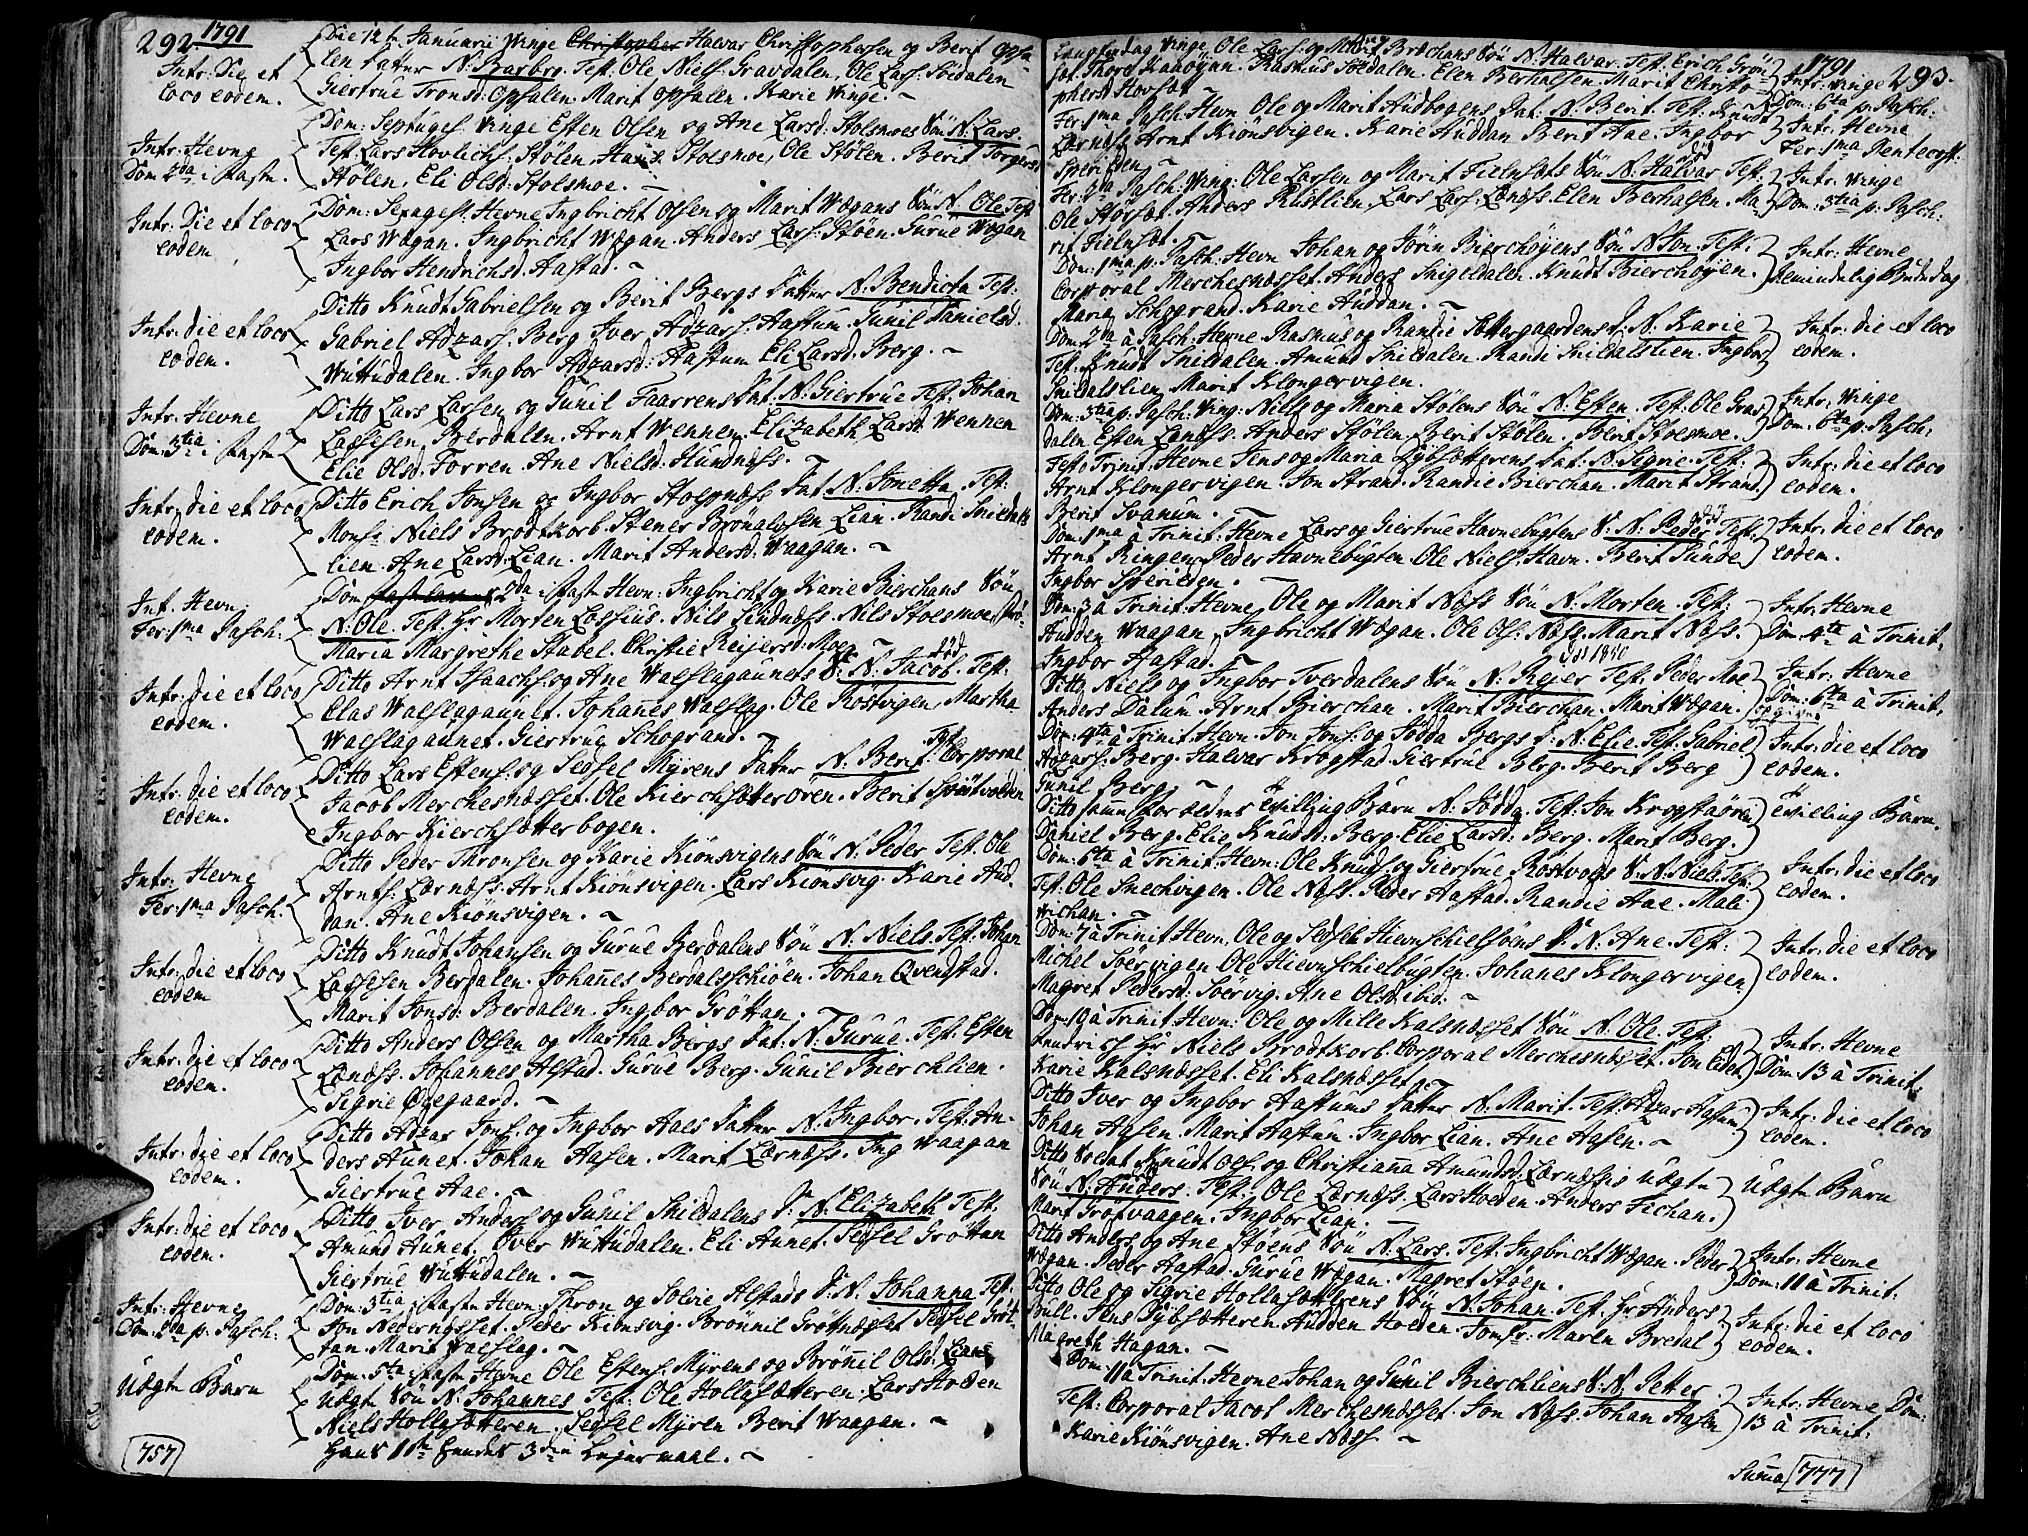 292 1791
Die 12t Januarii Vinge Christopher Halvar Christophersen og Berit Opsa-
len Datter N: Barbro. Test: Ole Niels: Gravdalen, Ole Lars: Södalen
Giertrue Tronsd: Opsalen. Marit Opsalen. Karie Vinge.
Intr: Die et
loco eodem.
Dom: Septuges: Vinge Esten Olsen og Ane Larsd. Stolsmoes Sön N. Lars.
Test: Lars Stölen, Stolsmoe, Ole Stölen. Berit Torgersd
Stölen, Eli Olsd: Stolsmoe.
Intr: Hevne
Dom 2da i Faste.
Dom: Sexagest: Hevne Ingbricht Olsen og Marit Wægans Sön N. Ole Test
Lars Wægan. Ingbricht Wægan. Anders Lars: Stöen. Gurue Wægan
Ingbor Hendrichsd. Hastad.
Intr: Die et loco
eodem
Ditto Knudt Gabrielsen og Berit Bergs Datter N. Bendicta Test.
Gabriel Adzars: Berg Iver Adzars: Hastum. Gunil Danielsd.
Wuttudalen. Ingbor Adzarsd: Hastum Eli Larsd. Berg.
Intr: die et loco
eodem.
Ditto Lars Larsen og Gunil Faarrens Dat. N: Giertrue Test: Johan
Lassesen, Berdalen. Arnt Wennen. Elizabeth Larsd: Wennen
Elie Olsd. Forren. Ane Nielsd:
Intr: Hevne
Dom: 3tia i Faste
Ditto Erich Jonsen og Ingbor Dat N: Jonetta. Test:
Mons: Niels Brodtkorb. Stener Lian. Randi
lien. Ane Larsd: Lian. Marit Andersd: Waagan.
Intr: die et loco
eodem.
Dom 2da i Faste Hevn: Ingbricht og Karie Bierchans Sön
N: Ole. Test: Hr Morten Lossius. Nils Nils Stolsmoe,
Maria Margrethe Stabel. Christie Reijersd: Moen
Int. Hevn:
Fer: 1ma Pasch:
Ditto Arnt Isaachs: og Ane Walslagaunets S: N: Jacob. död Test:
Clas Walslagaunet. Johanes Walslag. Ole Röstvigen, Martha
Walslagaunet. Giertrue Schogrand.
Intr: die et loco
eodem.
Ditto Lars Estens: og Sedsel Myrens Datter N: Berit. Test: Corporal
Jacob Merchesnæsset. Ole Kierchsætterören. Berit
Ingbor Kierchsætterbogen.
Intr: die et loco
eodem.
Ditto Peder Thronsen og Karie Kiönsvigens Sön N. Peder Test. Ole
Arnts: Lernæss. Arnt Kiönsvigen. Lars Kiönsvig. Karie Aud-
dan. Ane Kiönsvigen.
Intr: Hevne
Fer: 1ma Pasch:
Ditto Knudt Johansen og Gurue Berdalens Sön N: Niels. Test. Johan
Lassesen Berdalen. Johañes Berdalsschiöen. Johan Qvenstad.
Marit Jonsd: Berdalen. Ingbor Gröttan.
Intr: die et loco
eodem
Ditto Anders Olsen og Martha Bergs Dat. N: Gurue. Test. Esten
Johannes Alstad. Gurue Berg. Gunil Bierchlien.
Sigrie Ödegaard.
Intr: die et loco
eodem.
Ditto Adzar Jons: og Ingbor Haes Datter N: Ingbor. Test: An-
ders Aunet. Johan Hasen. Marit Lernæss. Ing Waagan
Giertrue Aae.
Intr: die et loco
eodem.
Ditto Iver Anders: og Gunil Snildalens D: N: Elizabeth Test:
Amund Aunet. Iver Wuttudalen. Eli Aunet. Sedsel Gröttan
Giertrue Wuttudalen.
Intr: die et loco
eodem.
Dom: 3tia i Faste Hevn: Thron og Solvie Alstads D: N. Johanna Test:
Jon Nedernæsset. Peder Kiönsvig. Bronnil Sedsel Gröt-
tan. Marit Walslag.
Intr: Hevne
Dom: 2da p. Pasch:
Dom: 5ta i Faste Hevne Ole Estens: Myrens og Brönil Olsd: Lians
Uægte Sön N: Johannes Test: Ole Hollasætteren. Lars Hoeden
Niels Hollasætteren. Sedsel Myren Berit Waagan.
Hans 1te hendes 3die Lejermaal.
Uægte Barn
757
1791 293.
Langfredag Vinge, Ole Lars: og Marit Bræchans Sön N: Halvar. Test: Erich Grön
Thore Kaaöyan. Rasmus Södalen. Elen Berhalsen. Marit Christo-
phersd Hovsæt
Intr: Vinge
Dom: 6ta p. Pasch:
Fer: 1ma Pasch. Hevn Ole og Marit Audbogens Dat: N: Berit. Test: Knudt
Lernæs Arnt Kiönsvigen. Karie Auddan Berit Aae. Ingbor
Intr: Hevne
Fer: 1ma Pentecost:
Fer: 2da Pasch. Ving: Ole Larsen og Marit Fielnsæts Sön N: Halvar död Test:
Ole Störsæt. Anders Rustlien. Lars Lars: Elen Berhalsen. Ma-
rit Fielnsæt.
Intr: Vinge
Dom: 3tia p: Pasch:
Dom: 1ma p: Pasch. Hevn Johan og Jörin Bierchöyens Sön N Jon. Test:
Corporal Merchesnæsset. Anders Snigeldalen. Knudt Bierchöyen.
Maria Schogrand. Karie Auddan.
Intr: Hevne
Almindelig Bededag
Dom: 2da à Pasch: Hevne Rasmus og Randie D: N. Karie
Test. Knudt Snildalen. Amund Snildalen. Randi Snildalslien. Ingbor
Snildalslien. Marit Klongervigen.
Intr: die et loco
eodem.
Dom: 3tia p. Pasch: Ving: Niels og Maria Stölens Sön N: Esten. Test: Ole Grav
dalen Esten Anders Stölen. Berit Stölen. Berit Stolsmoe.
Intr: Vinge
Dom: 6ta p. Pasch:
Festo Trinit: Hevne Jens og Maria Dat: N. Sigrie. Test:
Arnt Klongervigen. Jon Strand. Randie Bierchan. Marit Strand.
Berit Svanum.
Intr: die et loco
eodem.
Dom: 1ma à Trinit: Hevne Lars og Giertrue Havnebugtens S. N. Peder död Test.
Arnt Ringen. Peder Havnebugten Ole Niels: Havn. Berit Sunde
Ingbor
Intr: die et loco
eodem.
Dom: 3 à Trinit: Hevne, Ole og Marit Næss Sön N: Morten. Test:
Audden Waagan, Ingbricht Wægan. Ole Ols: Næss. Marit Næss.
Ingbor Hastad.
Intr: Hevne
Dom: 4ta à Trinit.
Ditto Niels og Ingbor Tverdalens Sön N: Rejer Test: Peder Moe
Död 1840
Anders Dalum. Arnt Bierchan. Marit Bierchan. Marit Wægan.
Intr: Hevne
Dom: 6ta à Trinit.
Dom: 4ta à Trinit: Hevn: Jon Jons: og Jödda Bergs D: N: Elie. Test: Gabriel
Adzars: Berg. Halvar Krogstad. Giertrue Berg. Berit Berg
Gunil Berg.
Intr: die et loco
eodem.
Ditto samme forældres Tvilling Barn N. Jödda. Test: Jon
Daniel Berg. Elie Knudsd. Berg. Elie Larsd: Berg. Marit Berg.
Tvilling Barn.
Dom: 6ta à Trinit: Hevn: Ole Knuds: og Giertrue Röstvolds S: N. Niels. Test:
Test: Ole Snechvigen. Ole Næss. Peder Hastad. Randie Aae. Male
Intr: die et loco
eodem.
Dom: 7 à Trinit Hevn, Ole og Sedsele Hievnschielsöens D: N: Ane. Test:
Michel Söervigen Ole Hievnschielbugten. Johanes Klongervigen
Magret Pedersd: Söervig. Ane Olsd: ibid:
Intr: die et loco
eodem.
Dom: 10 à Trinit: Hevn: Ole og Mille Kalsnæsset Sön N. Ole. Test:
Hr Niels Brodtkorb. Corporal Merchesnæsset. Jon Eidet
Karie Kalsnæsset. Eli Kalsnæsset.
Intr: Hevne
Dom: 13 à Trinit:
Ditto Iver og Ingbor Hastums Datter N: Marit. Test: Adzar Hastum
Johan Hasen. Marit Hastum. Ingbor Lian. Ane Hasen.
Intr: die et loco
eodem.
Ditto Soldat Knudt Ols: og Christiaña Amundsd: Uægte
Sön N: Anders. Test: Ole Lernæss. Lars Hoeden. Anders Fichan.
Marit Grötvaagen. Ingbor Lian.
Uægte Barn
Ditto Anders og Ane Stöens Sön N: Lars. Test. Ingbricht Wægan. Peder
Wægan. Peder Hastad. Gurue Wægan. Magret Stöen.
Intr: Hevne
Dom: 11 à Trinit.
Ditto Ole og Sigrie Hollasætterens Sön N: Johan. Test. Hr Anders
Jens Audden Hoeden. Jomfr: Maren Bredal
Magreth Hagan.
Intr: die et loco
eodem.
Dom: 11 à Trinit: Hevne Johan og Gunil Bierchliens S: N: Petter.
Test: Corporal Jacob Merchesnæsset. Jon Næss. Johan Hasen
Karie Kiönsvigen. Ane Næss.
Intr: Hevne Dom:
13 à Trinit:
Suma 777